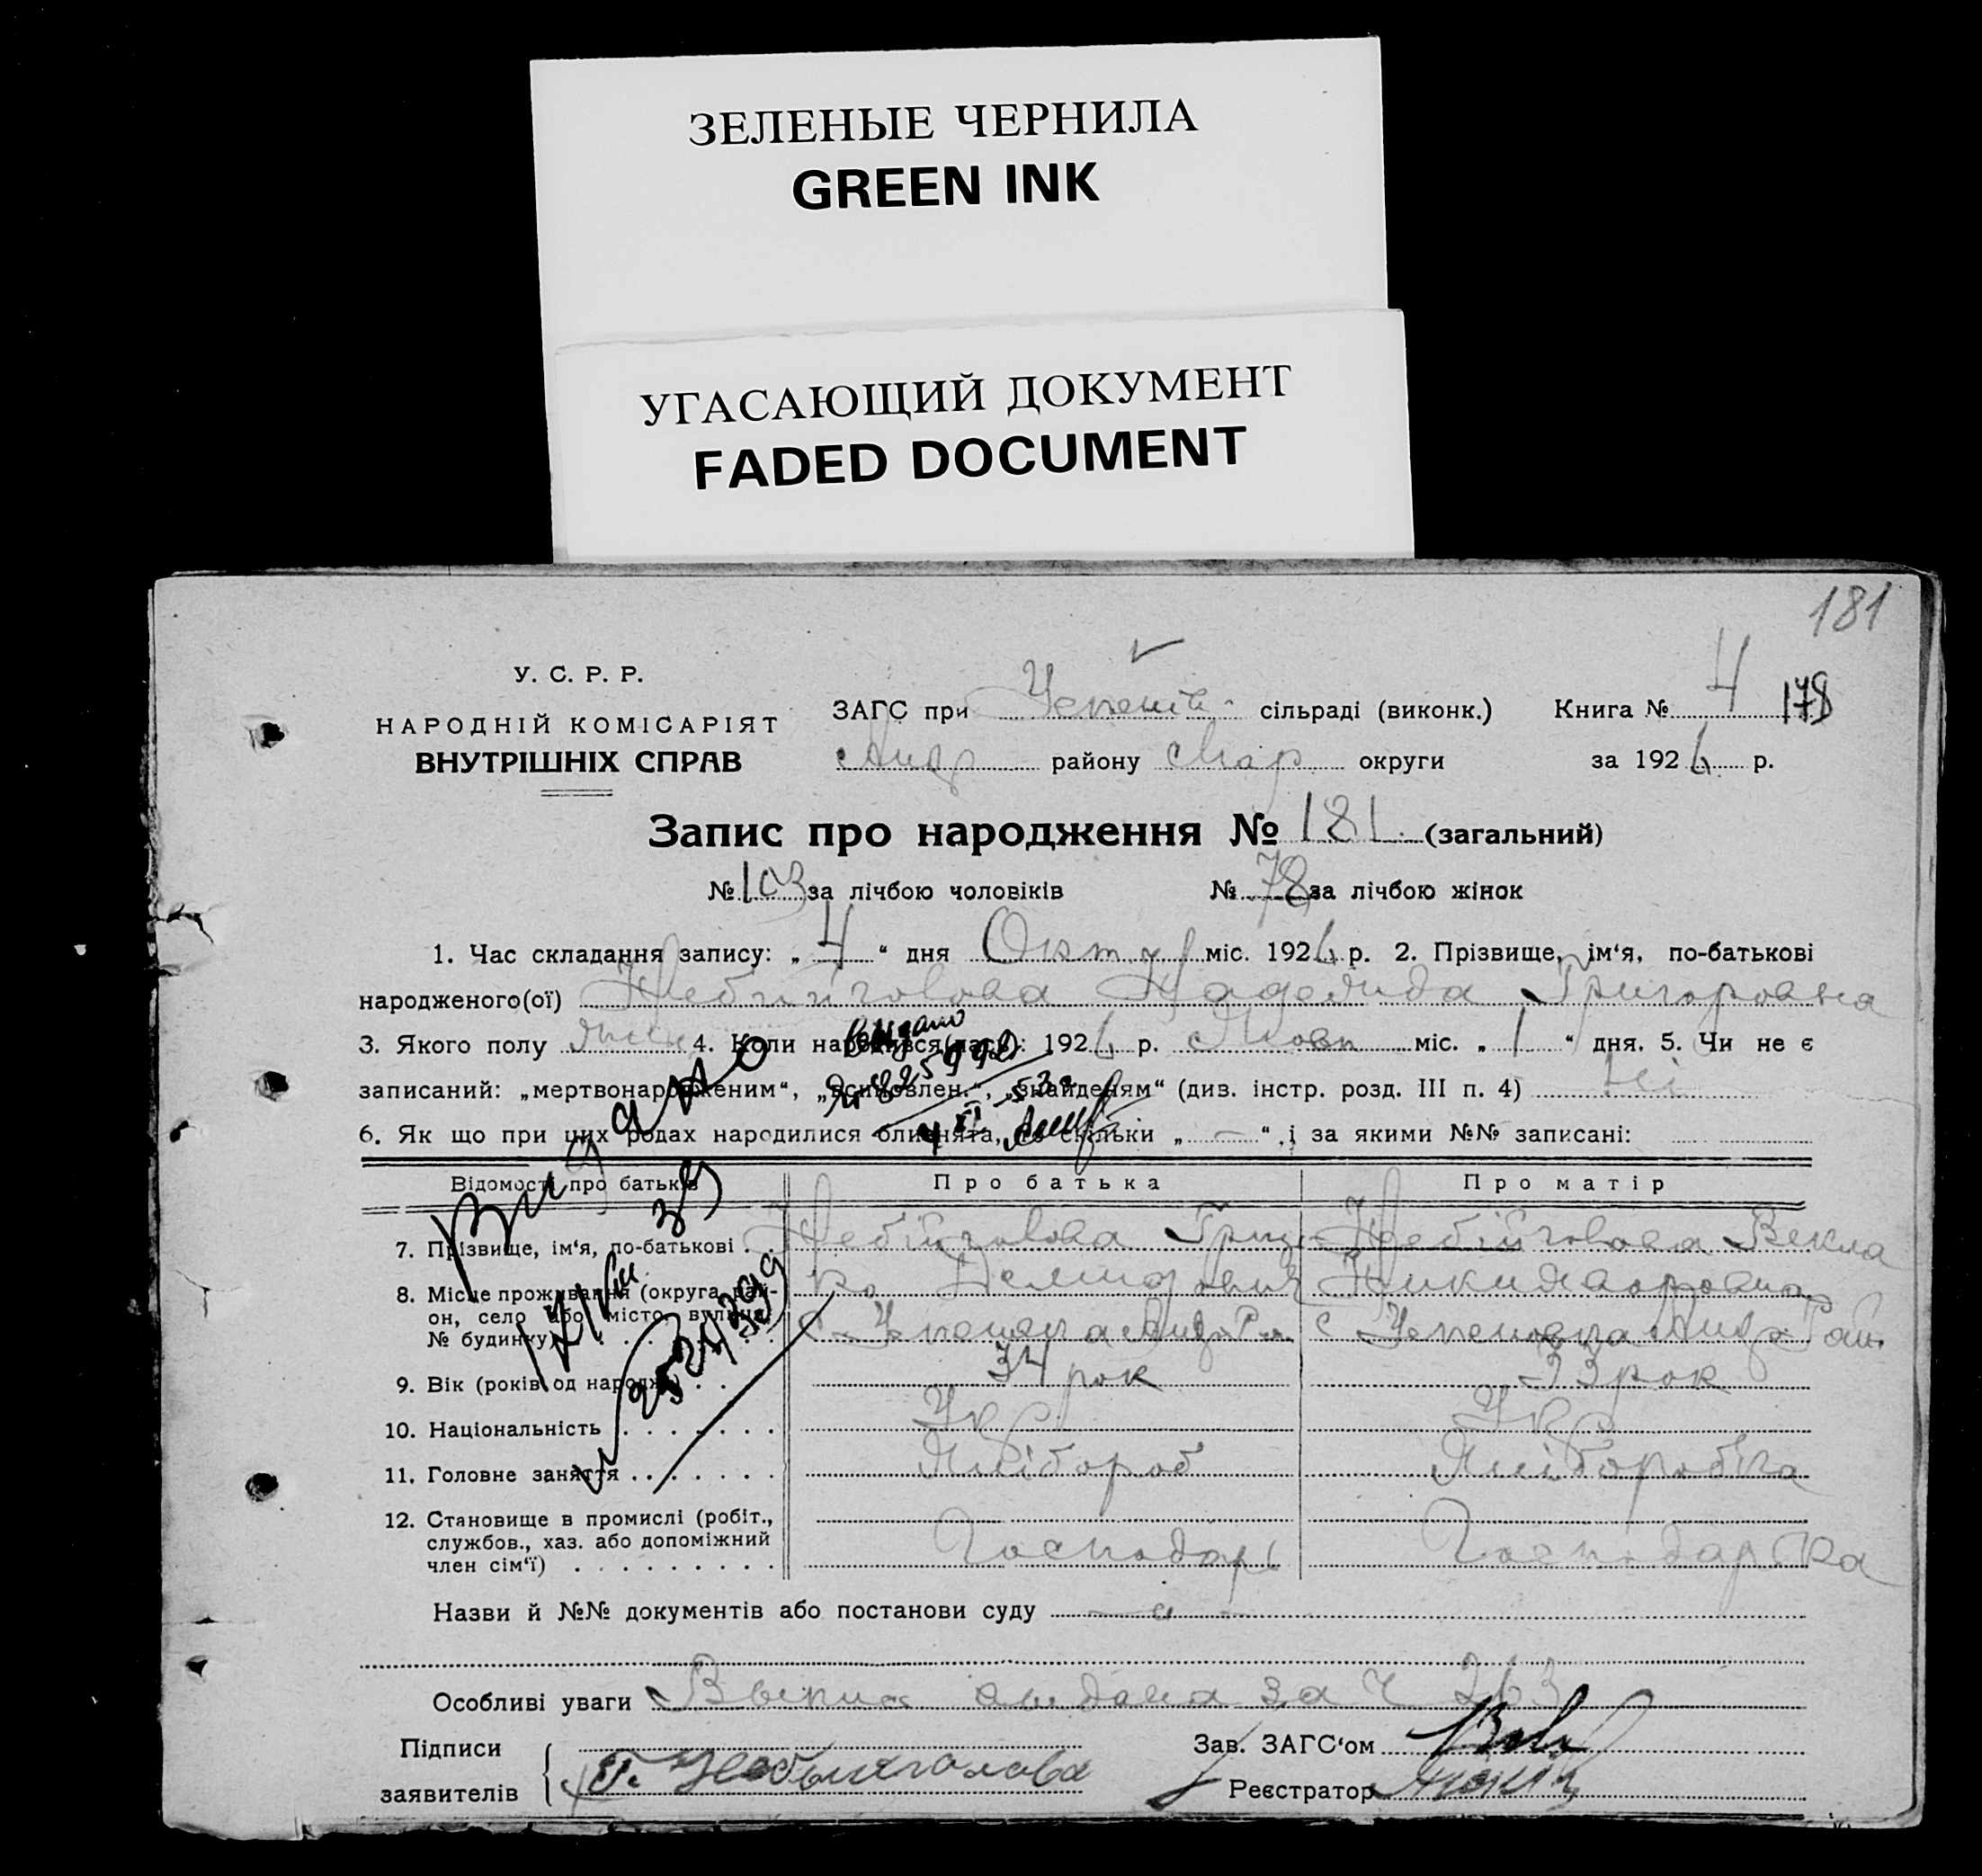 ЗЕЛЕНЫЕ ЧЕРНИЛА
GREEN INK
УГАСАЮЩИЙ ДОКУМЕНТ
FADED DOCUMENT
181
У. С. Р. Р.
НАРОДНІЙ КОМІСАРІЯТ
ВНУТРІШНІХ СПРАВ
ЗАГС при сільраді (виконк.) Книга № 4 178
району Мар. округи за 1926 р.
Запис про народження № 181 (загальний)
№ 103 за лічбою чоловіків № 78 за лічбою жінок
1. Час складання запису: „ 4 “ дня Окт міс. 1926 р. 2. Прізвище, ім‘я, по-батькові
народженого(ої) Небийголова Надежида Григоровна
3. Якого полу жін 4. Коли народився(лась): 1926 р. Жовт міс. „ 1 “ дня. 5. Чи не є
записаний: „мертвонародженим“, „всиновлен.“, „знайденям“ (див. інстр. розд. III п. 4) Ні
6. Як що при цих родах народилися близнята, то скільки „ — “ , і за якими №№ записані:
Видано
Відомості про батьків Про батька Про матір
7. Прізвище, ім‘я, по-батькові . . Небійголова Грицько Небійголова Векла
8. Місце проживання (округа, район, село або місто, вулиця, № будинку)
9. Вік (років од народж.) . . . 34 рок 33 рок
10. Національність . . . . . . . Укр Укр
11. Головне заняття . . . . . . . Хлібороб Хліборобка
12. Становище в промислі (робіт.,
службов., хаз. або допоміжний
член сім‘ї) . . . . . . . . . Господарь Господарка
Назви й №№ документів або постанови суду
Особливі уваги Выпись выдана за Ч 263
Підписи
заявителів Г. Небыйголова
Зав. ЗАГС‘ом
Реєстратор